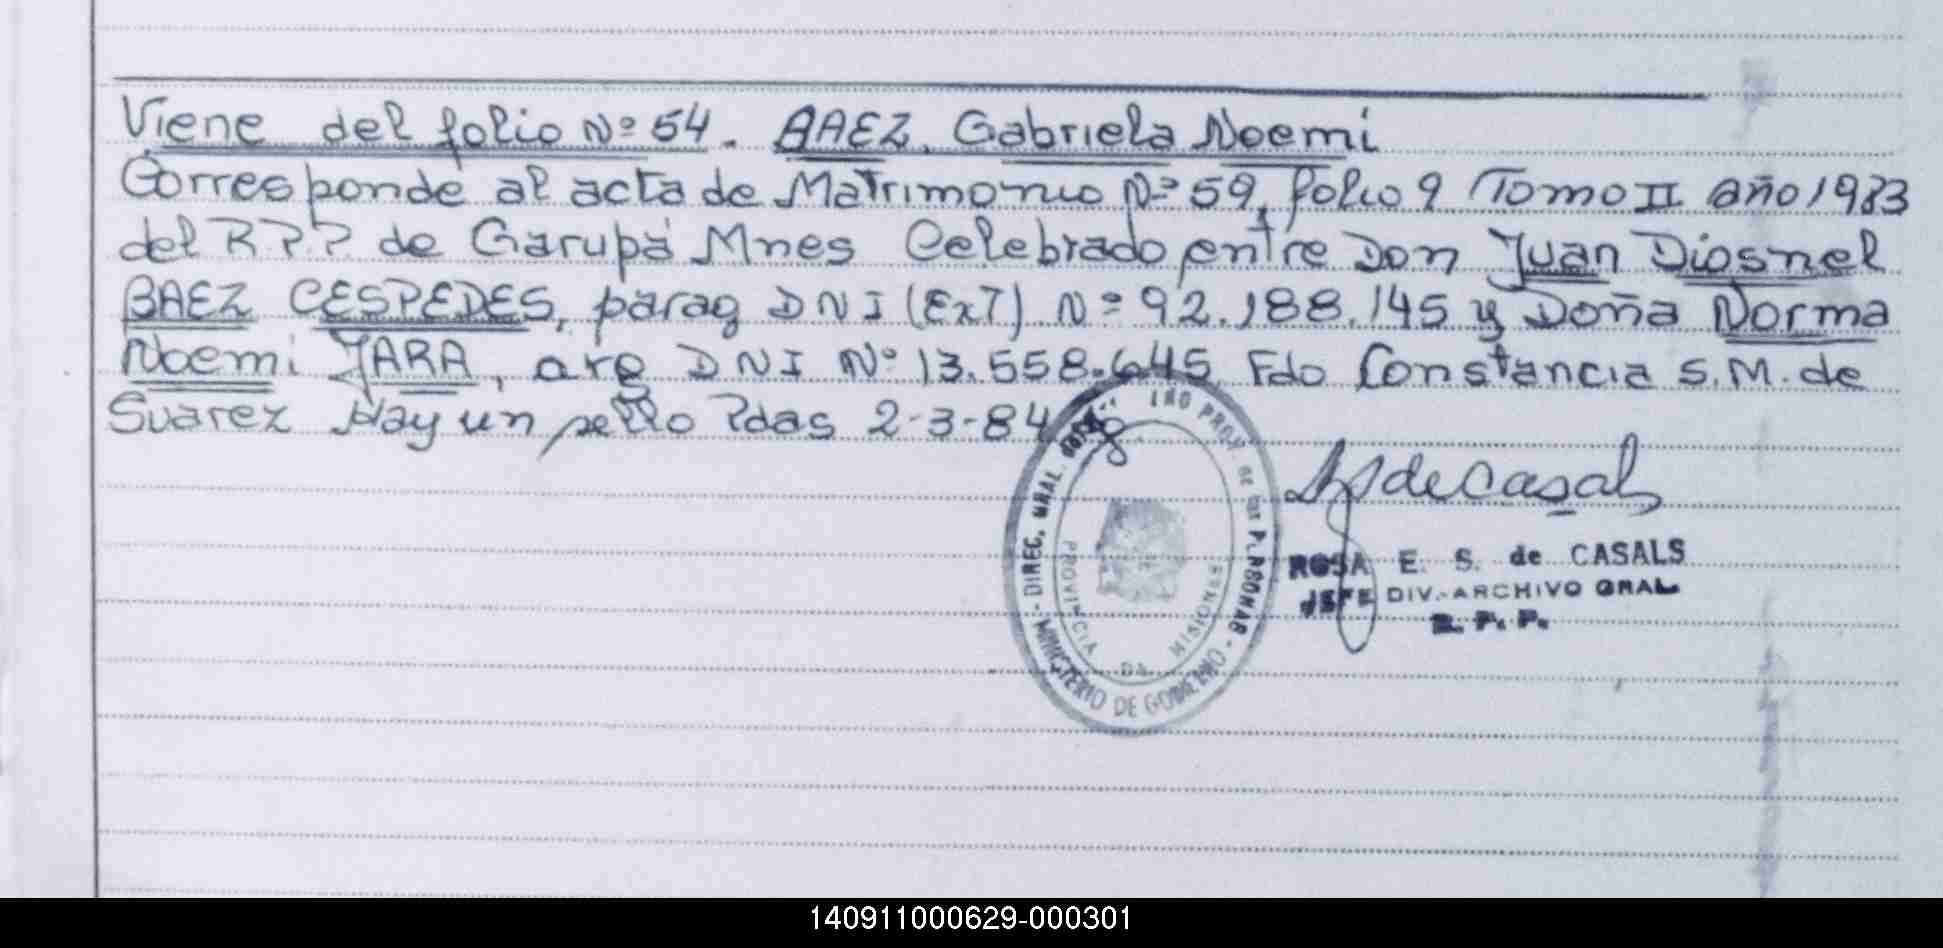 Viene del folio Nº 54. BAEZ, Gabriela Noemi
Corresponde al acta de Matrimonio Nº 59, folio 9 Tomo II año 1983
del R.P.P. de Garupá Mnes Celebrado entre Don Juan Diosnel
BAEZ CESPEDES, parag DNI (ExT) Nº 92.188.145 y Doña Norma
Noemi JARA, arg DNI Nº 13.558.645 Fdo Constancia S.M. de
Suarez Hay un sello Pdas 2-3-84
DIREC. GRAL. PROV. DE LAS PERSONAS - MINISTERIO DE GOBIERNO -
PROVINCIA DE MISIONES
de Casals
ROSA E. S. de CASALS
JEFE DIV.-ARCHIVO GRAL
R. P. P.
140911000629-000301